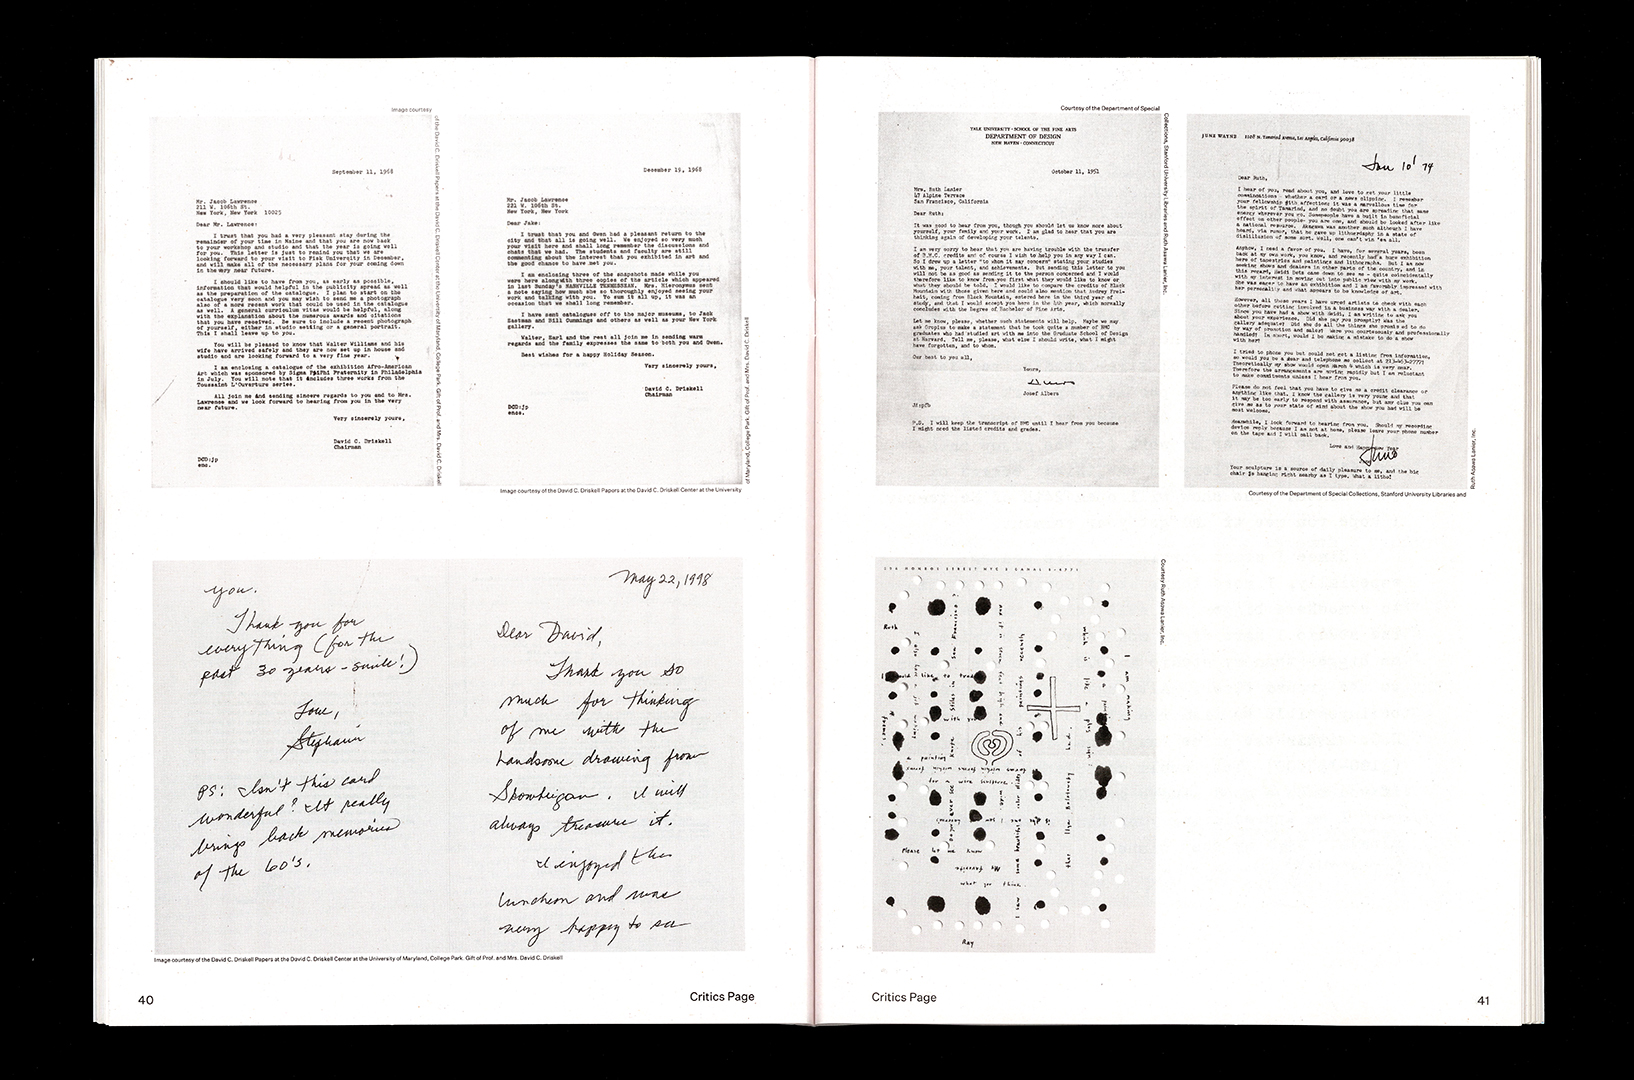 Image courtesy
of the David C. Driskell Papers at the David C. Driskell Center at the University of Maryland, College Park. Gift of Prof. and Mrs. David C. Driskell
September 11, 1968
Mr. Jacob Lawrence
211 W. 106th St.
New York, New York 10025
Dear Mr. Lawrence:
I trust that you had a very pleasant stay during the
remainder of your time in Maine and that you are now back
to your workshop and studio and that the year is going well
for you. This letter is just to remind you that we are
looking forward to your visit to Fisk University in December,
and will make all of the necessary plans for your coming down
in the very near future.
I should like to have from you, as early as possible,
information that would helpful in the publicity spread as well
as the preparation of the catalogue. I plan to start on the
catalogue very soon and you may wish to send me a photograph
also of a more recent work that could be used in the catalogue
as well. A general curriculum vitae would be helpful, along
with the explanation about the numerous awards and citations
that you have received. Be sure to include a recent photograph
of yourself, either in studio setting or a general portrait.
This I shall leave up to you.
You will be pleased to know that Walter Williams and his
wife have arrived safely and they are now set up in house and
studio and are looking forward to a very fine year.
I am enclosing a catalogue of the exhibition Afro-American
Art which was sponsored by Sigma Fraternity in Philadelphia
in July. You will note that it includes three works from the
Toussaint L'Ouverture series.
All join me and sending sincere regards to you and to Mrs.
Lawrence and we look forward to hearing from you in the very
near future.
Very sincerely yours,
David C. Driskell
Chairman
DCD:jp
enc.
December 19, 1968
Mr. Jacob Lawrence
221 W. 106th St.
New York, New York
Dear Jake:
I trust that you and Gwen had a pleasant return to the
city and that all is going well. We enjoyed so very much
your visit here and shall long remember the discussions and
chats that we had. The students and faculty are still
commenting about the interest that you exhibited in art and
the good chance to have met you.
I am enclosing three of the snapshots made while you
were here along with three copies of the article which appeared
in last Sunday's NASHVILLE TENNESSEAN. Mrs. Hieronymus sent
a note saying how much she so thoroughly enjoyed seeing your
work and talking with you. To sum it all up, it was an
occasion that we shall long remember.
I have sent catalogues off to the major museums, to Jack
Eastman and Bill Cummings and others as well as your New York
gallery.
Walter, Earl and the rest all join me in sending warm
regards and the family expresses the same to both you and Gwen.
Best wishes for a happy Holiday Season.
Very sincerely yours,
David C. Driskell
Chairman
DCD:jp
encs.
Image courtesy of the David C. Driskell Papers at the David C. Driskell Center at the University
of Maryland, College Park. Gift of Prof. and Mrs. David C. Driskell
you.
Thank you for
everything (for the
past 30 years – smile!)
Love,
Stephanie
PS: Isn't this card
wonderful? It really
brings back memories
of the 60's.
May 22, 1998
Dear David,
Thank you so
much for thinking
of me with the
handsome drawing from
Skowhegan. I will
always treasure it.
I enjoyed the
luncheon and was
very happy to see
Image courtesy of the David C. Driskell Papers at the David C. Driskell Center at the University of Maryland, College Park. Gift of Prof. and Mrs. David C. Driskell
40
Critics Page
Courtesy of the Department of Special
Collections, Stanford University Libraries and Ruth Asawa Lanier, Inc.
YALE UNIVERSITY · SCHOOL OF THE FINE ARTS
DEPARTMENT OF DESIGN
NEW HAVEN · CONNECTICUT
October 11, 1951
Mrs. Ruth Lanier
47 Alpine Terrace
San Francisco, California
Dear Ruth:
It was good to hear from you, though you should let us know more about
yourself, your family and your work. I am glad to hear that you are
thinking again of developing your talents.
I am very sorry to hear that you are having trouble with the transfer
of B.M.C. credits and of course I wish to help you in any way I can.
So I drew up a letter "to whom it may concern" stating your studies
with me, your talent, and achievements. But sending this letter to you
will not be as good as sending it to the person concerned and I would
therefore like to know from you first what they would like to know or
what they should be told. I would like to compare the credits of Black
Mountain with those given here and could also mention that Audrey Frei-
heit, coming from Black Mountain, entered here in the third year of
study, and that I would accept you here in the 4th year, which normally
concludes with the Degree of Bachelor of Fine Arts.
Let me know, please, whether such statements will help. Maybe we may
ask Gropius to make a statement that he took quite a number of BMC
graduates who had studied art with me into the Graduate School of Design
at Harvard. Tell me, please, what else I should write, what I might
have forgotten, and to whom.
Our best to you all,
Yours,
Josef Albers
P.S. I will keep the transcript of BMC until I hear from you because
I might need the listed credits and grades.
JUNE WAYNE 1108 N. Tamarind Avenue, Los Angeles, California 90038
Jan 10 '74
Dear Ruth,
I hear of you, read about you, and love to get your little
communications - whether a card or a news clipping. I remember
your fellowship with affection: it was a marvellous time for
the spirit of Tamarind, and no doubt you are spreading that same
energy wherever you go. Some people have a built in beneficial
effect on other people- you are one, and should be looked after like
a national resource.
Anyhow, I need a favor of you. I have, for several years, been
back at my own work, you know, and recently had a huge exhibition
here of tapestries and paintings and lithographs. But I am now
seeking shows and dealers in other parts of the country, and in
this regard, Heidi Getz came down to see me - quite coincidentally
with my interest in moving out into public view with my work.
She was eager to have an exhibition and I am favorably impressed with
her personality and what appears to be knowledge of art.
However, all those years I have urged artists to check with each
other before getting involved in a business way with a dealer.
Since you have had a show with Heidi, I am writing to ask you
about your experience. Did she pay you promptly? Was the
gallery adequate? Did she do all the things she promised to do
by way of promotion and sales? Were you courteously and professionally
handled? In short, would I be making a mistake to do a show
with her?
I tried to phone you but could not get a listing from information,
so would you be a dear and telephone me collect at
Theoretically my show would open March 4 which is very near.
Therefore the arrangements are moving rapidly but I am reluctant
to make commitments unless I hear from you.
Please do not feel that you have to give me a credit clearance or
anything like that. I know the gallery is very young and that
it may be too early to respond with assurance, but any clue you can
give me as to your state of mind about the show you had will be
most welcome.
Meanwhile, I look forward to hearing from you. Should my recording
device reply because I am not at home, please leave your phone number
on the tape and I will call back.
Love and Happy New Year
June
Your sculpture is a source of daily pleasure to me, and the big
chair is hanging right nearby as I type. What a litho!
Courtesy of the Department of Special Collections, Stanford University Libraries and
Ruth Asawa Lanier, Inc.
Courtesy Ruth Asawa Lanier, Inc.
Ruth
Please let me know
what you think.
Ray
Critics Page
41